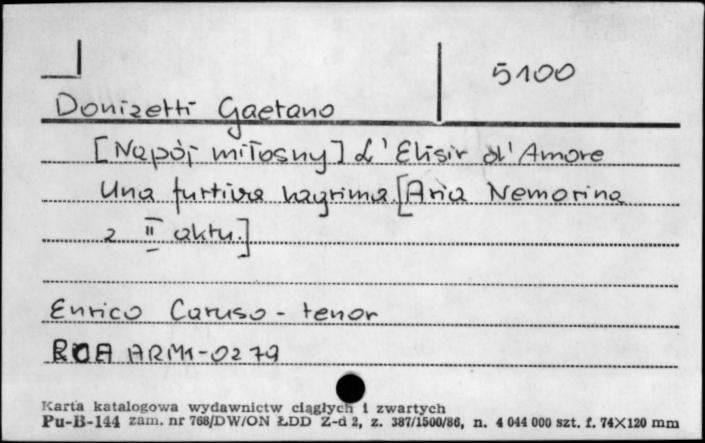 5100
Donizetti Gaetano
[Napój miłosny] L'Elisir d'Amore
Una furtiva lagrima [Aria Nemorina
z II aktu.]
Enrico Caruso - tenor
RCA ARM1-0279
Karta katalogowa wydawnictw ciągłych i zwartych
Pu-B-144 zam. nr 768/DW/ON ŁDD Z-d 2, z. 387/1500/86, n. 4 044 000 szt. f. 74×120 mm